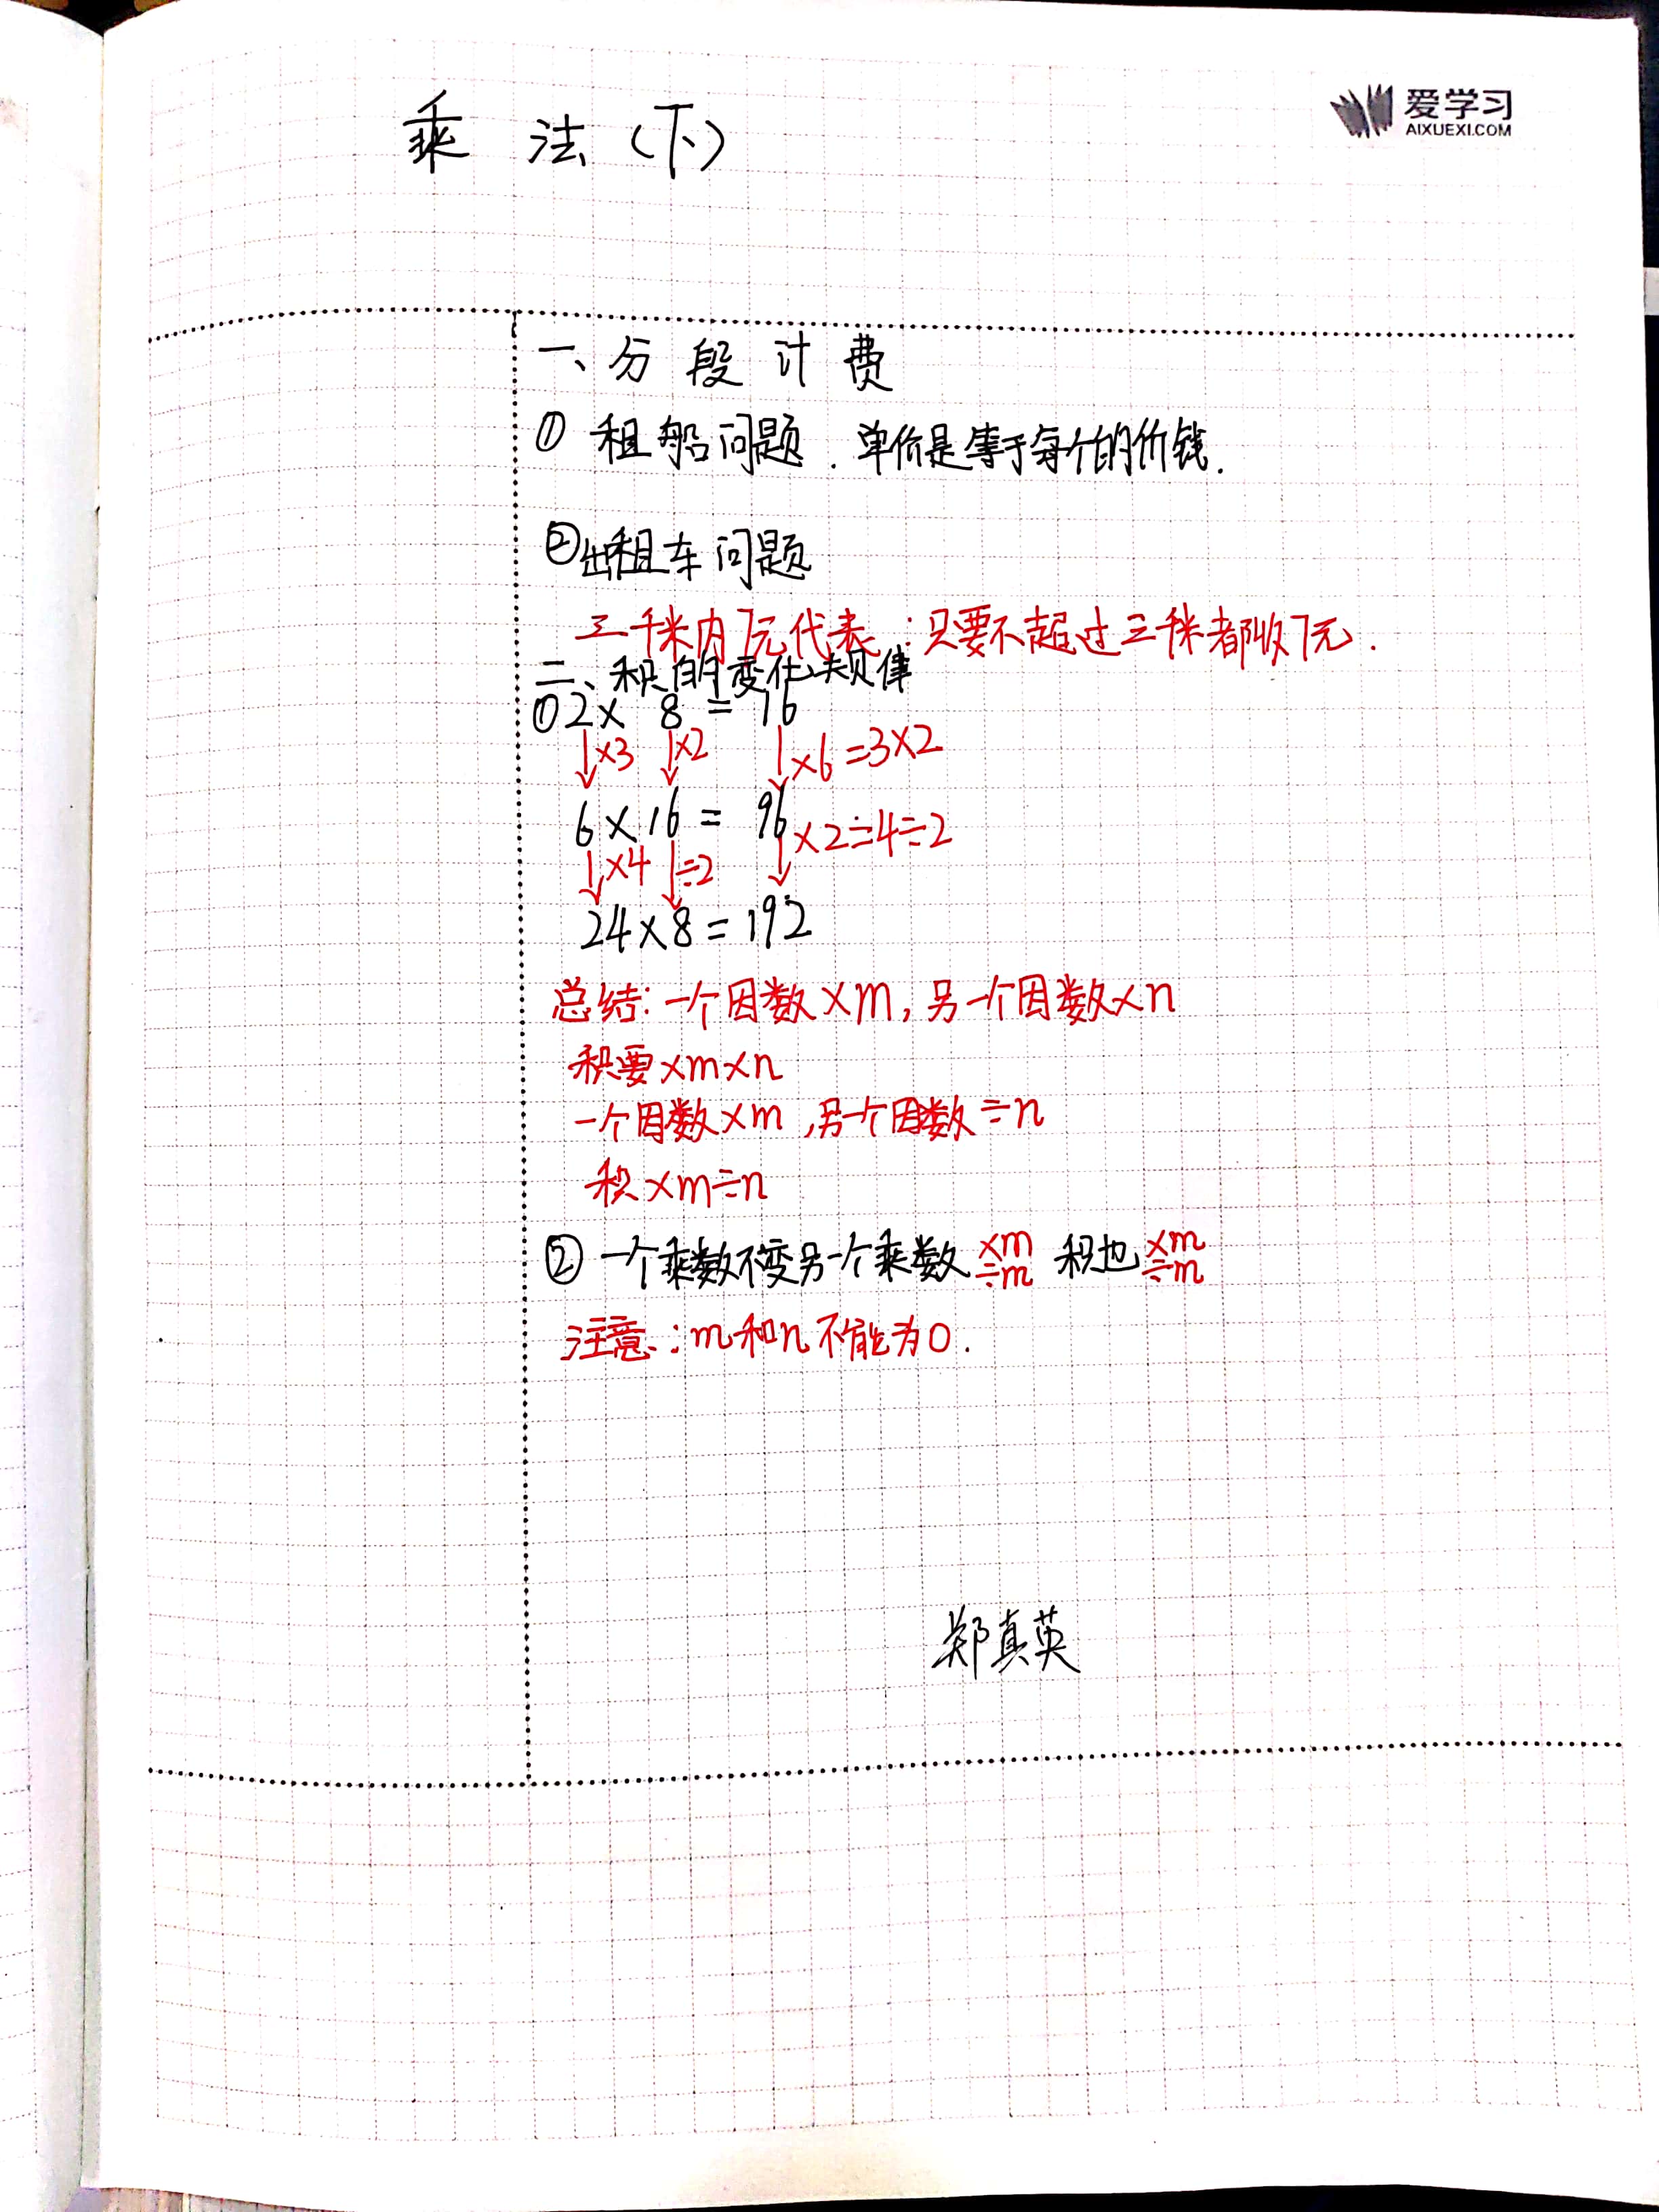 爱学习
AIXUEXI.COM
乘 法（下）
一、分段计费
① 租船问题．单价是等于每个的价钱．
②出租车问题
三千米内7元代表：只要不超过三千米都收7元．
二、积的变化规律
①2× 8 = 16
↓×3 ↓×2 ↓×6=3×2
6×16= 96
↓×4 ↓÷2 ↓×2÷4÷2
24×8=192
总结：一个因数×m，另一个因数×n
积要×m×n
一个因数×m，另一个因数÷n
积×m÷n
② 一个乘数不变另一个乘数×m÷m 积也×m÷m
注意：m和n不能为0．
郑真英